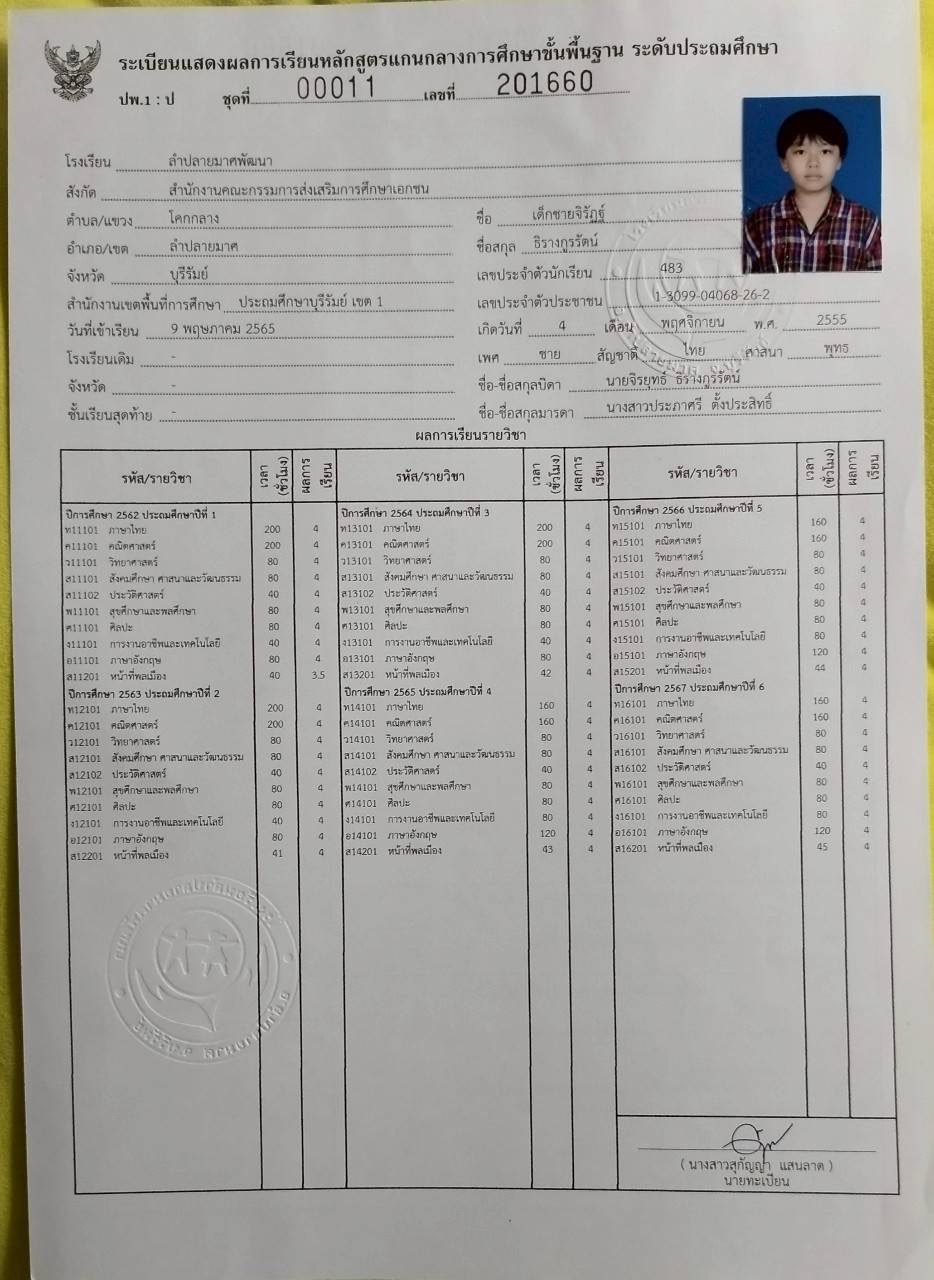 ระเบียนแสดงผลการเรียนหลักสูตรแกนกลางการศึกษาขั้นพื้นฐาน ระดับประถมศึกษา
ปพ.1 : ป ชุดที่ 00011 เลขที่ 201660
โรงเรียน ลำปลายมาศพัฒนา
สังกัด สำนักงานคณะกรรมการส่งเสริมการศึกษาเอกชน
ตำบล/แขวง โคกกลาง
อำเภอ/เขต ลำปลายมาศ
จังหวัด บุรีรัมย์
สำนักงานเขตพื้นที่การศึกษา ประถมศึกษาบุรีรัมย์ เขต 1
วันที่เข้าเรียน 9 พฤษภาคม 2565
โรงเรียนเดิม -
จังหวัด -
ชั้นเรียนสุดท้าย -
ชื่อ เด็กชายจิรัฏฐ์
ชื่อสกุล ธิรางกูรรัตน์
เลขประจำตัวนักเรียน 483
เลขประจำตัวประชาชน 1-3099-04068-26-2
เกิดวันที่ 4 เดือน พฤศจิกายน พ.ศ. 2555
เพศ ชาย สัญชาติ ไทย ศาสนา พุทธ
ชื่อ-ชื่อสกุลบิดา นายจิรยุทธ์ ธิรางกูรรัตน์
ชื่อ-ชื่อสกุลมารดา นางสาวประภาศรี ตั้งประสิทธิ์
ผลการเรียนรายวิชา
รหัส/รายวิชา เวลา (ชั่วโมง) ผลการเรียน
ปีการศึกษา 2562 ประถมศึกษาปีที่ 1
ท11101 ภาษาไทย 200 4
ค11101 คณิตศาสตร์ 200 4
ว11101 วิทยาศาสตร์ 80 4
ส11101 สังคมศึกษา ศาสนาและวัฒนธรรม 80 4
ส11102 ประวัติศาสตร์ 40 4
พ11101 สุขศึกษาและพลศึกษา 80 4
ศ11101 ศิลปะ 80 4
ง11101 การงานอาชีพและเทคโนโลยี 40 4
อ11101 ภาษาอังกฤษ 80 4
ส11201 หน้าที่พลเมือง 40 3.5
ปีการศึกษา 2563 ประถมศึกษาปีที่ 2
ท12101 ภาษาไทย 200 4
ค12101 คณิตศาสตร์ 200 4
ว12101 วิทยาศาสตร์ 80 4
ส12101 สังคมศึกษา ศาสนาและวัฒนธรรม 80 4
ส12102 ประวัติศาสตร์ 40 4
พ12101 สุขศึกษาและพลศึกษา 80 4
ศ12101 ศิลปะ 80 4
ง12101 การงานอาชีพและเทคโนโลยี 40 4
อ12101 ภาษาอังกฤษ 80 4
ส12201 หน้าที่พลเมือง 41 4
รหัส/รายวิชา เวลา (ชั่วโมง) ผลการเรียน
ปีการศึกษา 2564 ประถมศึกษาปีที่ 3
ท13101 ภาษาไทย 200 4
ค13101 คณิตศาสตร์ 200 4
ว13101 วิทยาศาสตร์ 80 4
ส13101 สังคมศึกษา ศาสนาและวัฒนธรรม 80 4
ส13102 ประวัติศาสตร์ 40 4
พ13101 สุขศึกษาและพลศึกษา 80 4
ศ13101 ศิลปะ 80 4
ง13101 การงานอาชีพและเทคโนโลยี 40 4
อ13101 ภาษาอังกฤษ 80 4
ส13201 หน้าที่พลเมือง 42 4
ปีการศึกษา 2565 ประถมศึกษาปีที่ 4
ท14101 ภาษาไทย 160 4
ค14101 คณิตศาสตร์ 160 4
ว14101 วิทยาศาสตร์ 80 4
ส14101 สังคมศึกษา ศาสนาและวัฒนธรรม 80 4
ส14102 ประวัติศาสตร์ 40 4
พ14101 สุขศึกษาและพลศึกษา 80 4
ศ14101 ศิลปะ 80 4
ง14101 การงานอาชีพและเทคโนโลยี 80 4
อ14101 ภาษาอังกฤษ 120 4
ส14201 หน้าที่พลเมือง 43 4
รหัส/รายวิชา เวลา (ชั่วโมง) ผลการเรียน
ปีการศึกษา 2566 ประถมศึกษาปีที่ 5
ท15101 ภาษาไทย 160 4
ค15101 คณิตศาสตร์ 160 4
ว15101 วิทยาศาสตร์ 80 4
ส15101 สังคมศึกษา ศาสนาและวัฒนธรรม 80 4
ส15102 ประวัติศาสตร์ 40 4
พ15101 สุขศึกษาและพลศึกษา 80 4
ศ15101 ศิลปะ 80 4
ง15101 การงานอาชีพและเทคโนโลยี 80 4
อ15101 ภาษาอังกฤษ 120 4
ส15201 หน้าที่พลเมือง 44 4
ปีการศึกษา 2567 ประถมศึกษาปีที่ 6
ท16101 ภาษาไทย 160 4
ค16101 คณิตศาสตร์ 160 4
ว16101 วิทยาศาสตร์ 80 4
ส16101 สังคมศึกษา ศาสนาและวัฒนธรรม 80 4
ส16102 ประวัติศาสตร์ 40 4
พ16101 สุขศึกษาและพลศึกษา 80 4
ศ16101 ศิลปะ 80 4
ง16101 การงานอาชีพและเทคโนโลยี 80 4
อ16101 ภาษาอังกฤษ 120 4
ส16201 หน้าที่พลเมือง 45 4
( นางสาวสุกัญญา แสนลาด )
นายทะเบียน